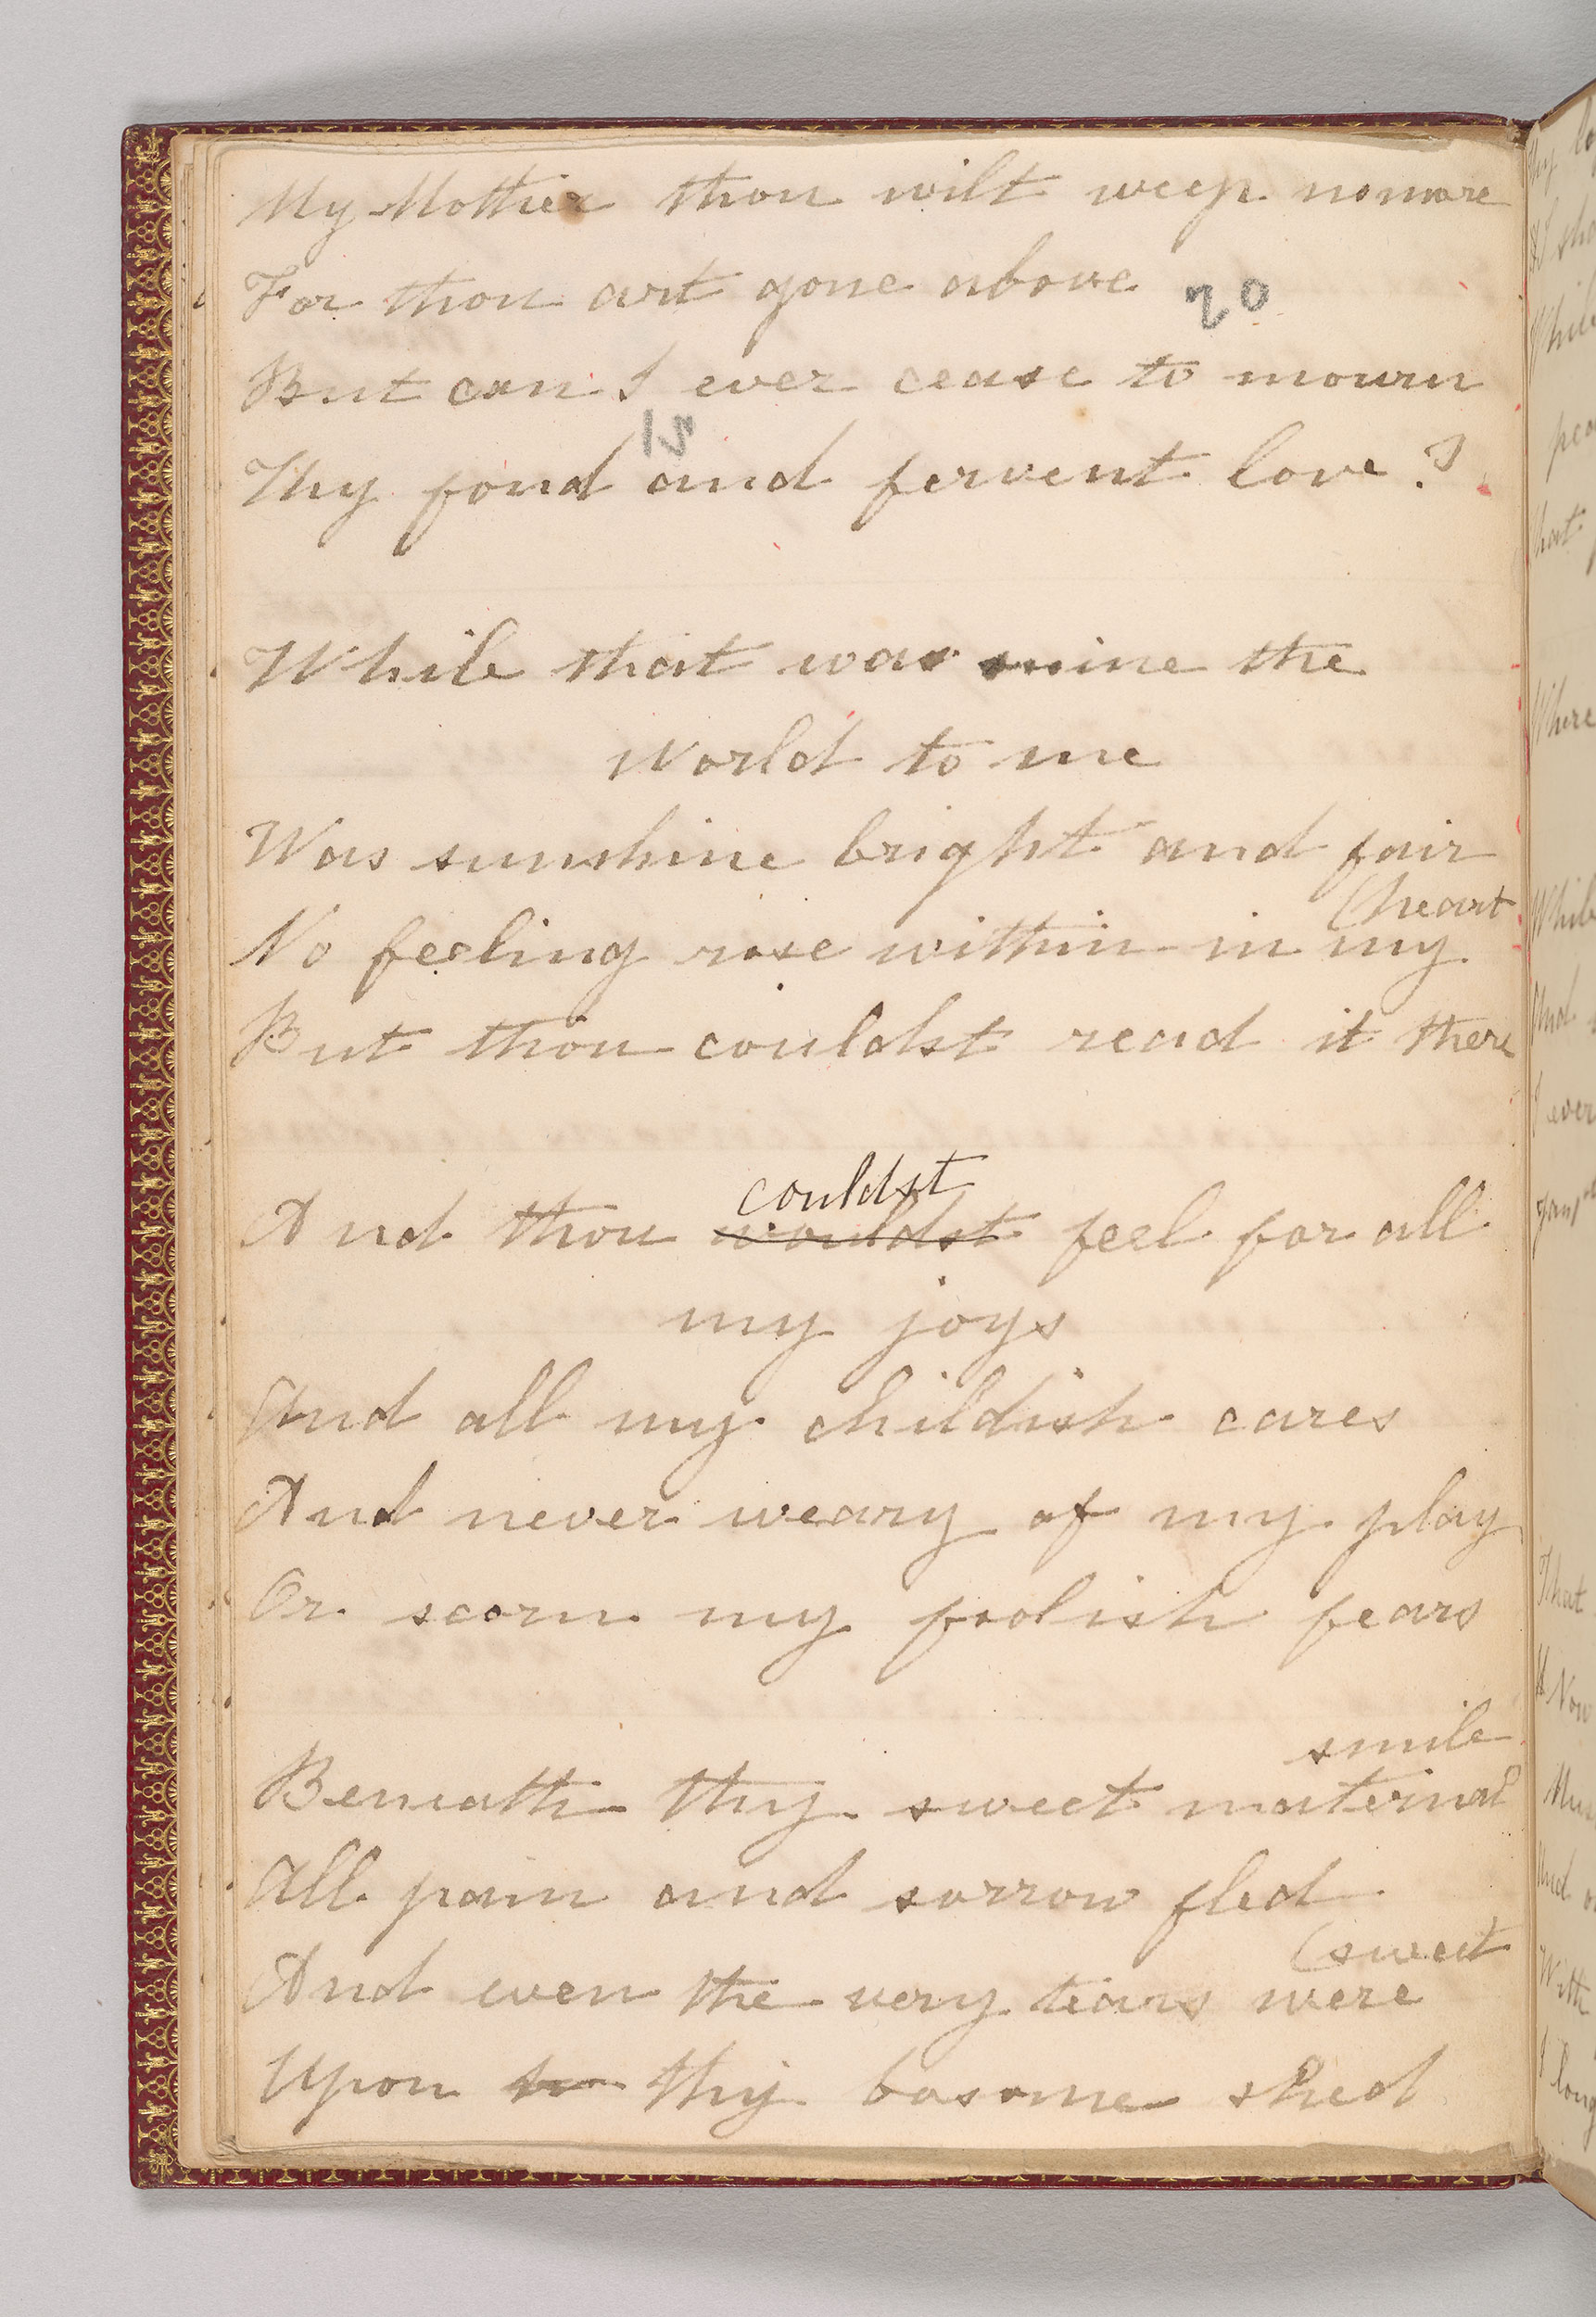 My Mother thou wilt weep nomore
For thou art gone above
20
But can I ever cease to mourn
15
Thy fond and fervent love?
While that was mine the
World to me
Was sunshine bright and fair
No feeling rose within in my (heart
But thou couldst read it there
couldst
And thou wouldst feel for all
my joys
And all my childish cares
And never weary of my play
Or scorn my foolish fears
smile
Beneath thy sweet maternal
All pain and sorrow fled
And even the very tears were (sweet
Upon thy bosome shed
Where
That
With